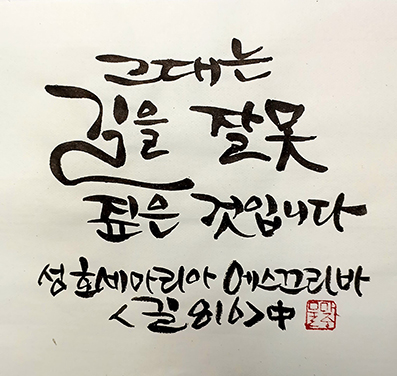 그대는
길을 잘못
짚은 것입니다
성 호세마리아 에스끄리바
<길 816>中